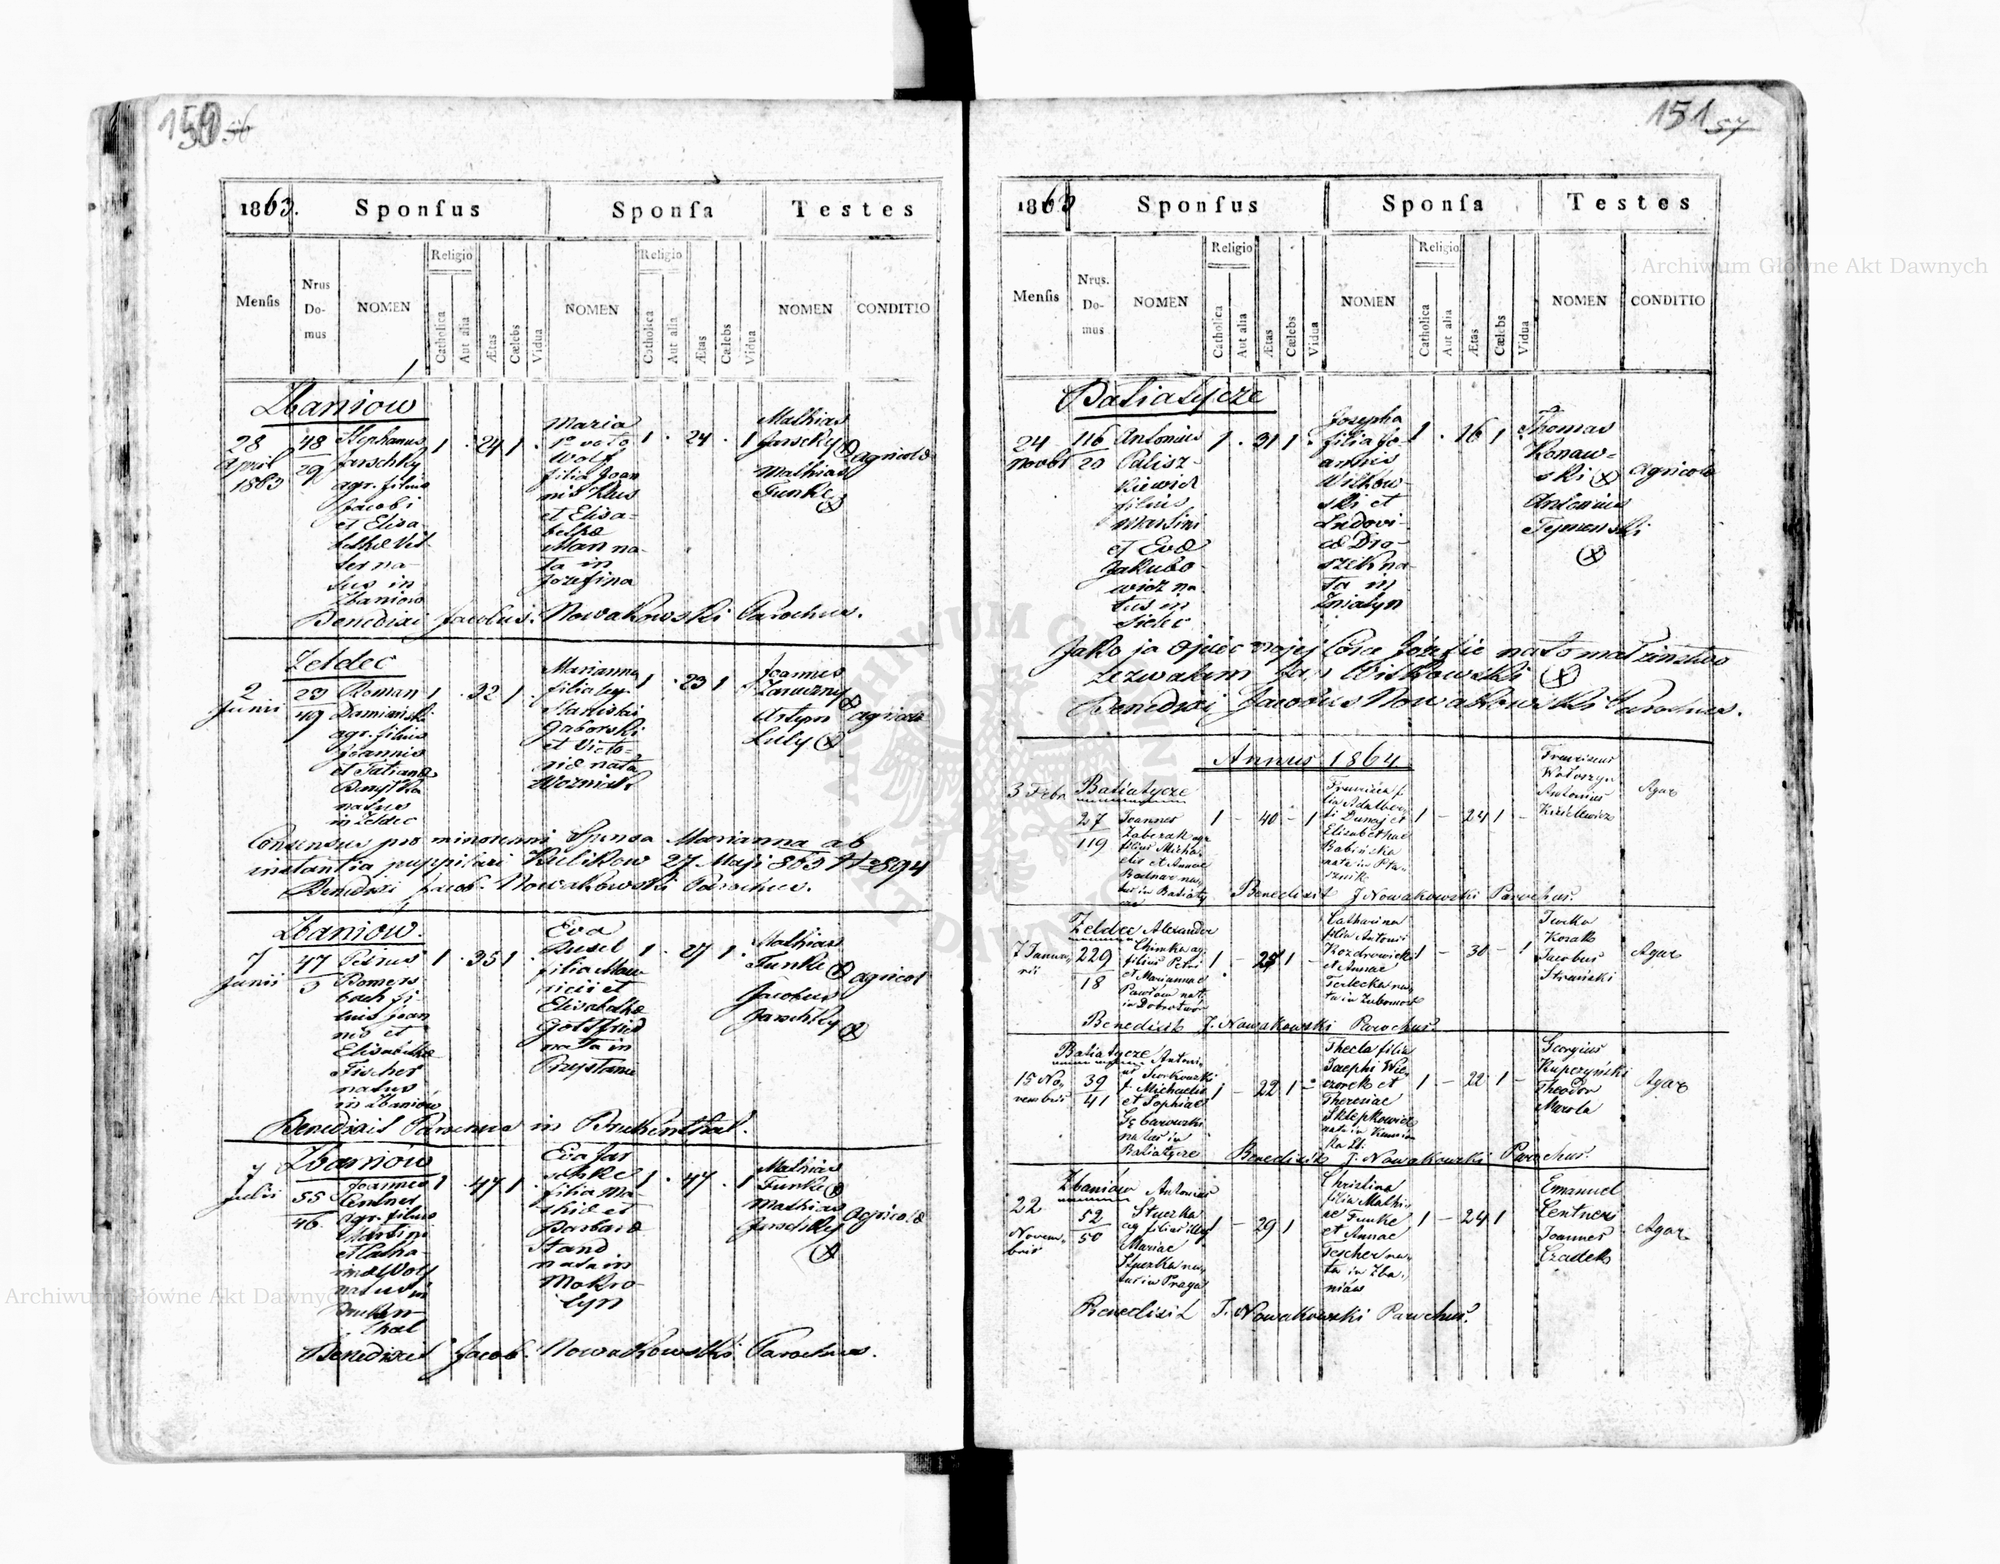 150 56
1863. Sponſus Sponſa Testes
Menſis Nrus Domus NOMEN Religio Catholica Aut alia Ætas Cælebs Vidua NOMEN Religio Catholica Aut alia Ætas Cælebs Vidua NOMEN CONDITIO
Zbaniów
28 April 1863
48
29
Stephanus
Jarschky
agr. filius
Jacobi
et Elisa-
bethæ Vet-
ter na-
tus in
Zbaniow
1 . 24 1 .
Maria
1º voto
Wolf
filia Joan
nis Kus
et Elisa-
bethæ
Man na-
ta in
Jozefina
1 . 24 . 1
Mathias
Jarschky
Mathias
Funke
agricolæ
Benedixi Jacobus Nowakowski Parochus.
Zeldec
2 Junii
23
49
Roman
Damiański
agr. filius
Joannis
et Tatianæ
natus
in Zeldec
1 . 32 1 .
Marianna
filia
Stanislai
Gaborski
et Victo-
riæ nata
Woźniak
1 . 23 1 .
Joannes
Zaruczny
Artym
Luty
agricolæ
Consensus pro minorenni Sponsa Marianna ab
instantia puppilari Kulikow 27 Maji 863 N 2894
Benedixi Jacob. Nowakowski Parochus.
Zbaniów.
7 Junii
47
5
Petrus
Bomers
bach fi-
lius Joan
nis et
Elisabethæ
Fischer
natus
in Zbaniów
1 . 35 1 .
Eva
Rusel
filia Mau
ricii et
Elisabethæ
Gottfried
nata in
Przystanie
1 . 27 1 .
Mathias
Funke
Jacobus
Jarschky
agricol
Benedixit Parochus in Bruckenthal.
Zbaniów
7 Julii
55
46
Joannes
Centner
agr. filius
Martini
et Catha-
rinæ Wolf
natus in
Brucken-
thal
1 . 47 1 .
Eva Jar
schke
filia Ma-
thiæ et
Barbaræ
Stand
nata in
Mokro-
tyn
1 . 47 . 1
Mathias
Funke
Mathias
Jarschky
agricolæ
Benedixit Jacob. Nowakowski Parochus.
151 57
1863 Sponſus Sponſa Testes
Menſis Nrus. Domus NOMEN Religio Catholica Aut alia Ætas Cælebs Vidua NOMEN Religio Catholica Aut alia Ætas Cælebs Vidua NOMEN CONDITIO
Batiatycze
24 Novbr
116
20
Antonius
Palisz-
kiewicz
filius
Martini
et Evæ
Jakubo-
wicz na-
tus in
Sielec
1 . 31 1 .
Josepha
filia Jo-
annis
Witkow-
ski et
Ludovi-
cæ Dro-
szek na-
ta in
Zniatyn
1 . 16 1 .
Thomas
Konaw-
ski
Antonius
agricolæ
Jako ja ojciec mojej córce Józefie na to małżeństwo
zezwalam Jan Witkowski
Benedixi Jacobus Nowakowski Parochus.
Annus 1864
3 Febr.
Batiatycze
27
119
Joannes
Zaberak agr
filius Micha-
elis et Annae
Bodnar na-
tus in Batiaty
cze
1 - 40 - 1
lia Adalber
ti Dunaj et
Elisabethae
Babińska
nata in Pta-
sznik
1 - 24 1 -
Franciscus
Wołoszyn
Antonius
Agar
Benedixit J Nowakowski Parochus.
Zeldec
7 Januarii
229
18
Alexander
Chimka ag
filius Petri
et Mariannae
Pawłów nat.
in Dobrotwór
1 - 25 1
Catharina
filia Antonii
Kozdrowicki
et Annae
Terlecka na-
ta in
1 - 30 - 1
Kozak
Jacobus
Agar
Benedixit J. Nowakowski Parochus.
Batiatycze
15 Novembris
39
41
Antoni-
us
f. Michaelis
et Sophiae
Gębarowski
natus in
Batiatycze
1 - 22 1 -
Thecla filia
Josephi Wie-
czorek et
Theresiae
Sklepkowicz
nata in
1 - 22 1 -
Georgius
Kupczyński
Theodor
Marola
Agar
Benedixit J. Nowakowski Parochus.
Zbaniów
22 Novembris
52
50
Antonius
Stuczka
ag filius illeg
Mariae
Stuczka na-
tus in Praga
1 - 29 1
Christina
filia Mathi-
ae Funke
et Annae
Fescher na-
ta in Zba-
niów
1 - 24 1
Emanuel
Centner
Joannes
Czadek
Agar
Benedixit J. Nowakowski Parochus.
Archiwum Główne Akt Dawnych
Archiwum Główne Akt Dawnych
ARCHIWUM GŁÓWNE AKT DAWNYCH